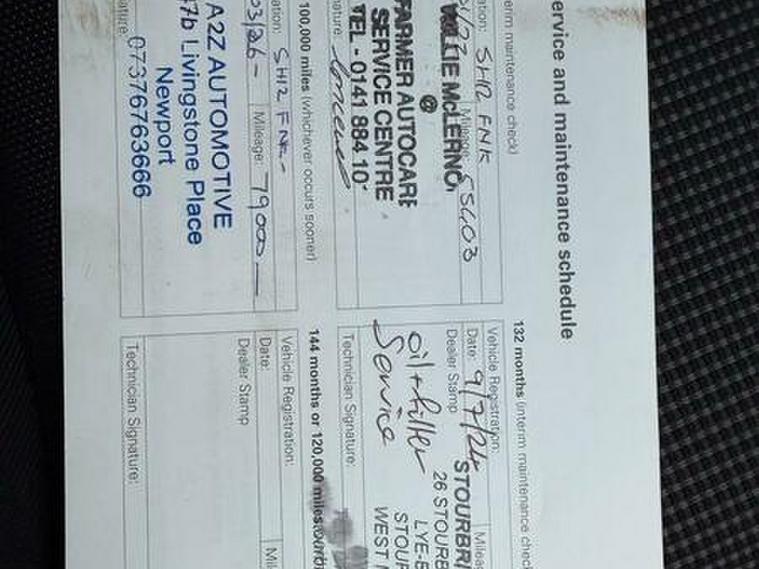 ervice and maintenance schedule
erim maintenance check)
ation: SH12 FNK
Mileage: 55603
WILLIE McLERNO
@
FARMER AUTOCARE
SERVICE CENTRE
TEL - 0141 884 10
nature:
100,000 miles (whichever occurs sooner)
ation: SH12 FNK -
03/26 - Mileage: 79000
A2Z AUTOMOTIVE
7b Livingstone Place
Newport
07376763666
nature:
132 months (interim maintenance check
Vehicle Registration:
Date: 9/7/24 Mileag
Dealer Stamp
STOURBRI
26 STOURB
LYE-
STOUR
WEST
oil + filter
Service
Technician Signature:
144 months or 120,000 miles
Vehicle Registration:
Date: Mil
Dealer Stamp
Technician Signature: